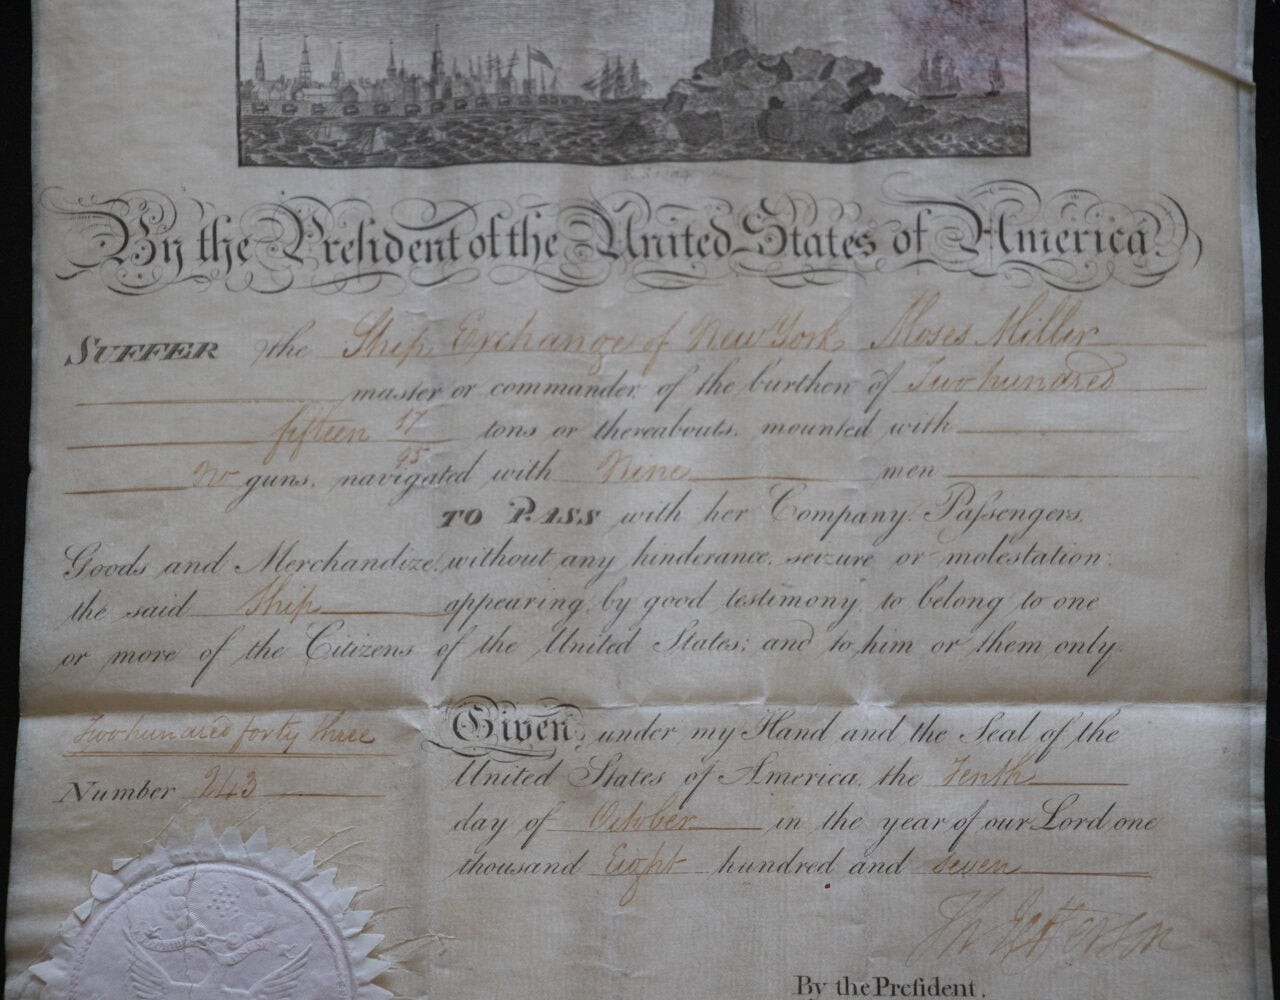 By the President of the United States of America.
SUFFER the Ship Exchange of New York, Moses Miller
master or commander, of the burthen of Two hundred
fifteen 17 tons or thereabouts, mounted with
no guns, navigated 95 with Nine men
TO PASS with her Company, Paſsengers,
Goods and Merchandize, without any hinderance, seizure or molestation;
the said Ship appearing by good testimony to belong to one
or more of the Citizens of the United States; and to him or them only.
Two hundred forty three
Number 243
Given, under my Hand and the Seal of the
United States of America, the Tenth
day of October in the year of our Lord one
thousand Eight hundred and seven
Th Jefferson
By the Preſident,